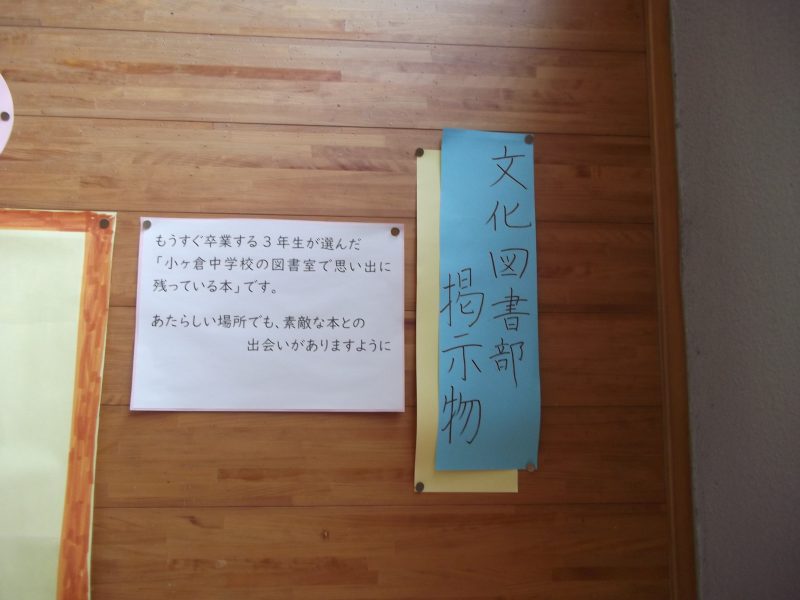 文化図書部
掲示物
もうすぐ卒業する3年生が選んだ
「小ヶ倉中学校の図書室で思い出に
残っている本」です。
あたらしい場所でも、素敵な本との
出会いがありますように